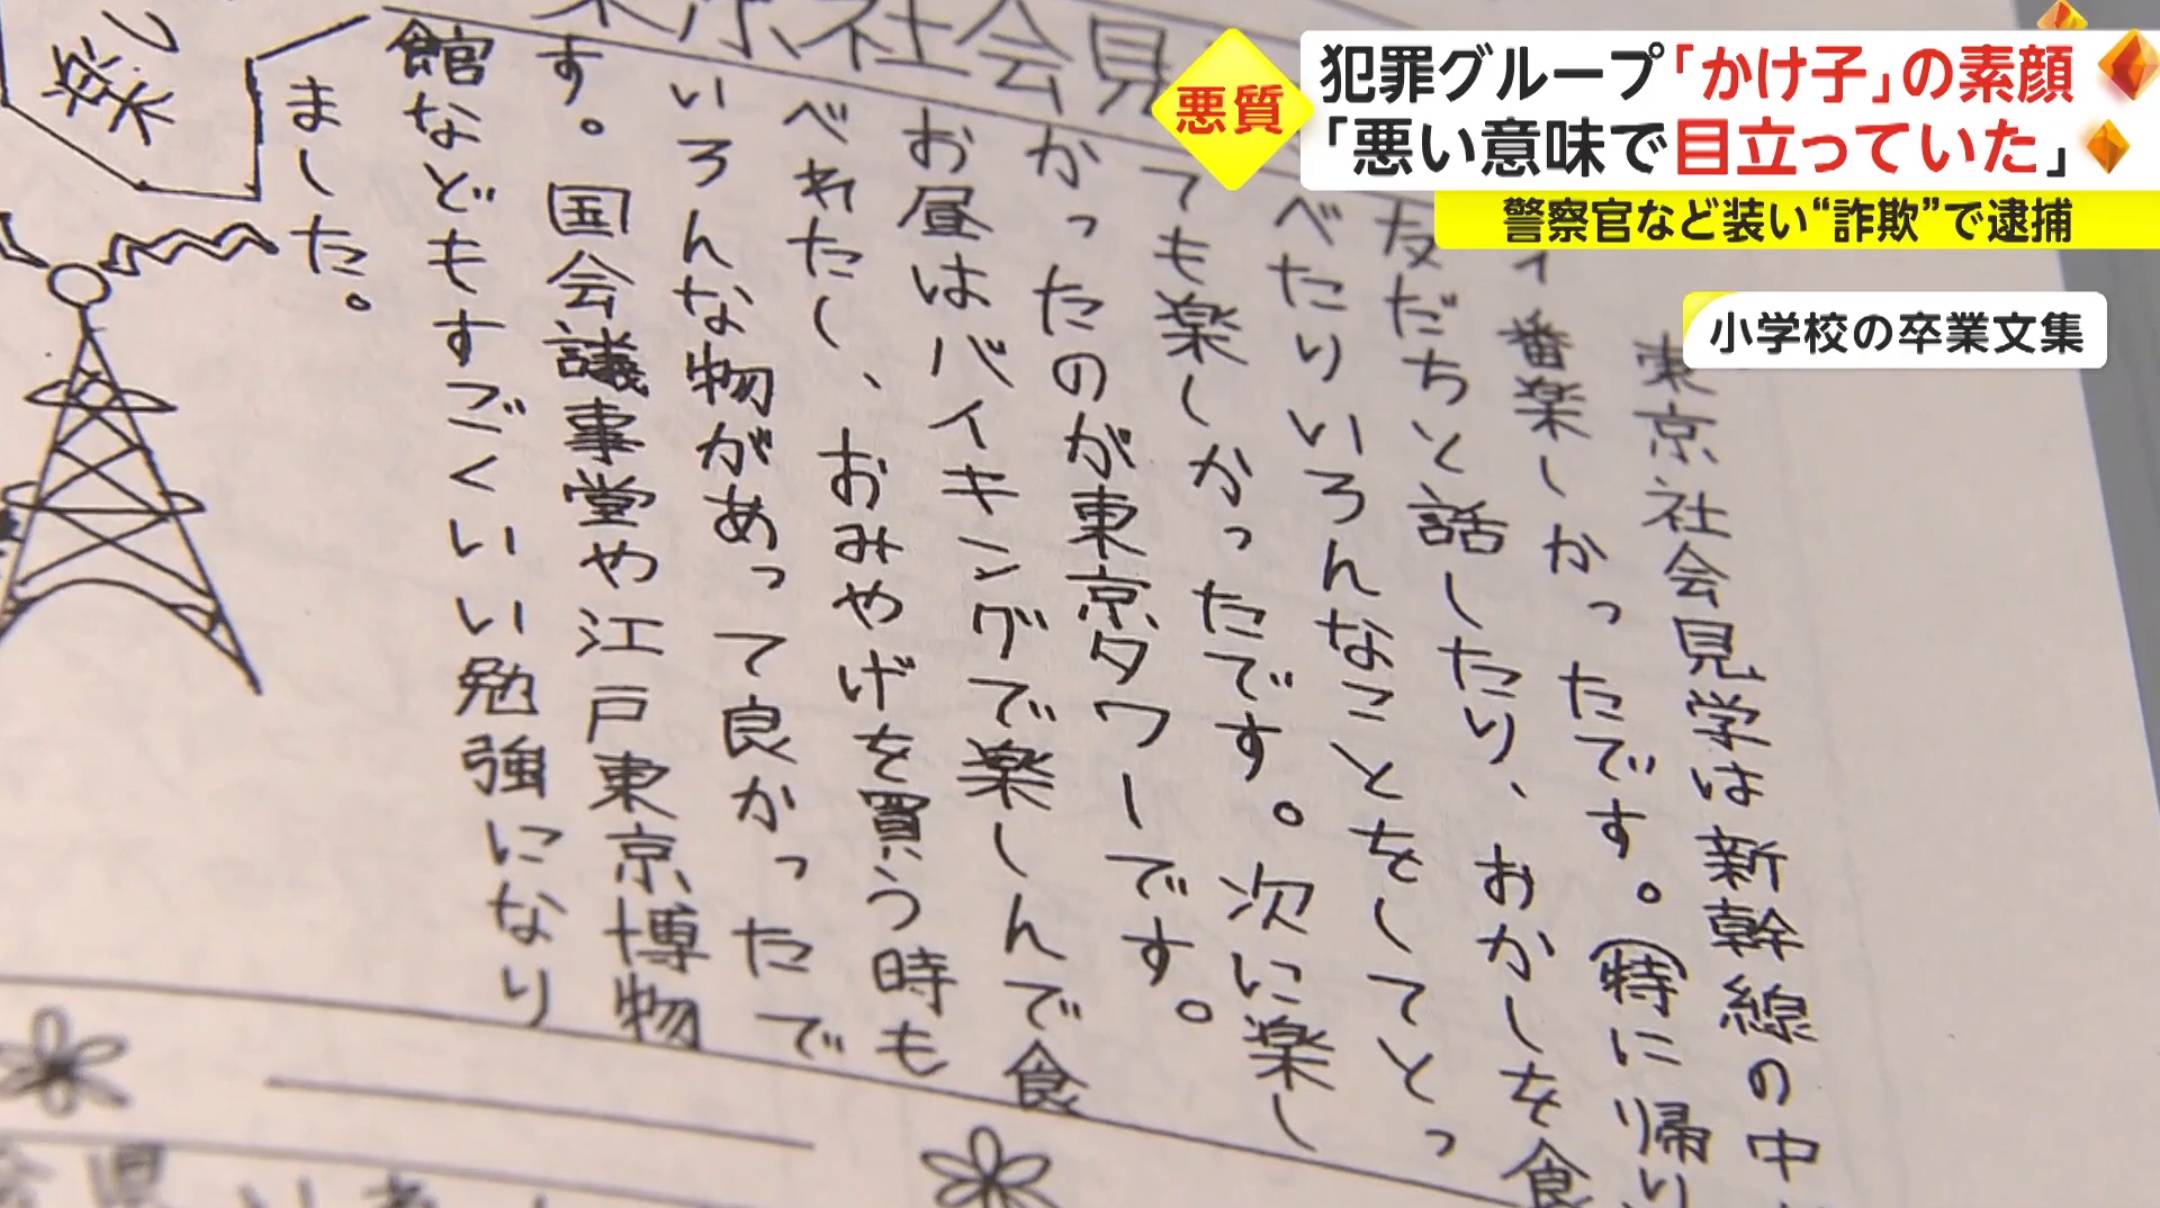 悪質
犯罪グループ「かけ子」の素顔
「悪い意味で目立っていた」
警察官など装い“詐欺”で逮捕
小学校の卒業文集
東京社会見
東京社会見学は新幹線の中
番楽しかったです。(特に帰り
友だちと話したり、おかしを食
べたりいろんなことをしてとっ
ても楽しかったです。次に楽し
かったのが東京タワーです。
お昼はバイキングで楽しんで食
べれたし、おみやげを買う時も
いろんな物があって良かったで
す。国会議事堂や江戸東京博物
館などもすごくいい勉強になり
ました。